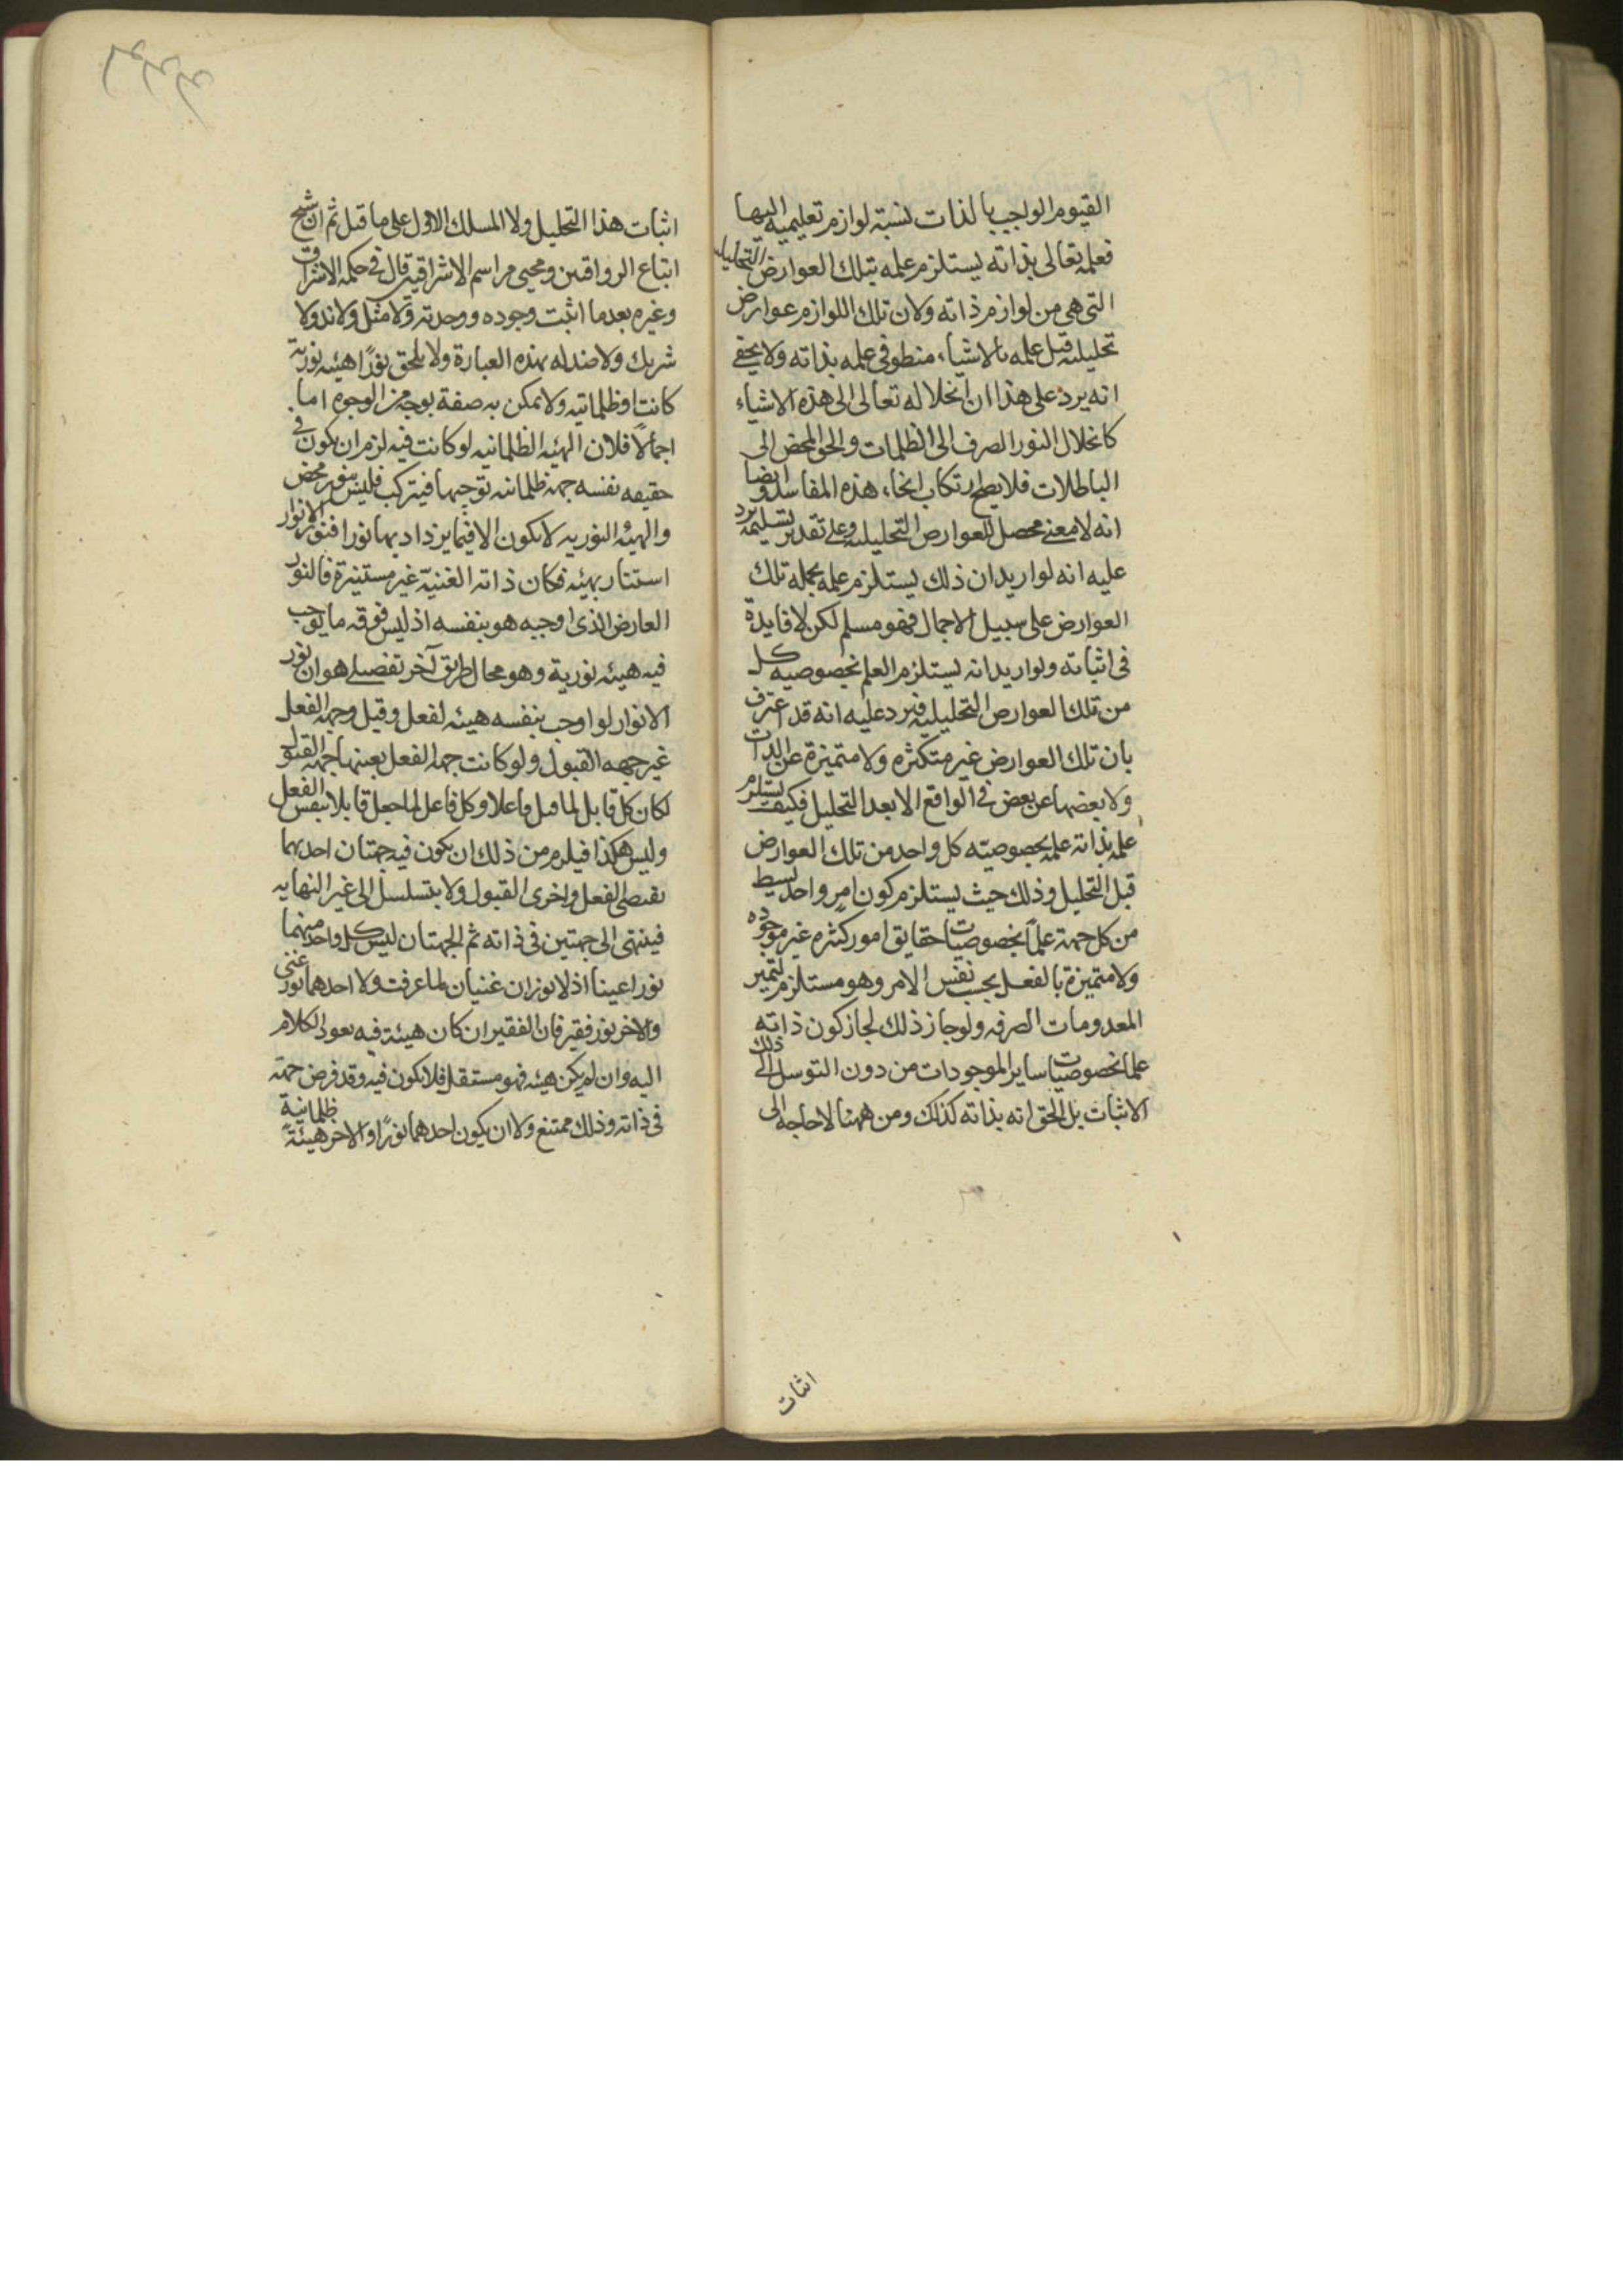 القيوم الواجب بالذات نسبة لوازم تعليميه اليها
فعلمه تعالى بذاته يستلزم علمه بتلك العوارض التحليليه
التى هى من لوازم ذاته ولان تلك اللوازم عوارض
تحليليه قبل علمه بالاشياء منطو فى علمه بذاته ولا يخفى
انه يرد على هذا ان انحلاله تعالى الى هذه الاشياء
كانحلال النور الصرف الى الظلمات والحق المحض الى
الباطلات فلا يصلح ارتكاب انحاء هذه المفاسد وايضا
انه لا معنى محصل للعوارض التحليليه وعلى تقدير تسليمه يرد
عليه انه لو اريد ان ذلك يستلزم علمه بجمله تلك
العوارض على سبيل الاجمال فهو مسلم لكن لا فايدة
فى اثباته ولو اريد انه يستلزم العلم بخصوصيه كل
من تلك العوارض التحليليه فيرد عليه انه قد اعترف
بان تلك العوارض غير متكثره ولا متميزة عن الذات
ولا بعضها عن بعض فى الواقع الا بعد التحليل فكيف يستلزم
علمه بذاته علمه بخصوصيته كل واحد من تلك العوارض
قبل التحليل وذلك حيث يستلزم كون امر واحد بسيط
من كل جهة علماً بخصوصيات حقايق امور كثره غير موجوده
ولا متميزة بالفعل بحسب نفس الامر وهو مستلزم لتميز
المعدومات الصرفه ولو جاز ذلك لجاز كون ذاته
علما بخصوصيات ساير الموجودات من دون التوسل الى ذلك
الاثبات بل الحق انه بذاته كذلك ومن ههنا لا حاجه الى
اثبات
اثبات هذا التحليل ولا المسلك الاول على ما قيل ثم ان شيخ
اتباع الرواقيين ومحيى مراسم الاشراقيه قال فى حكمه الاشراق
وغيره بعدما اثبت وجوده ووحدته ولا مثل ولا ند ولا
شريك ولا ضد له بهذه العبارة ولا يلحق نورًا هيئه نورية
كانت او ظلمانيه ولا يمكن به صفة بوجه من الوجوه اما
اجمالا فلان الهيئه الظلمانيه لو كانت فيه لزم ان يكون فى
حقيقه نفسه جهة ظلمانيه توجبها فيتركب فليس بنور محض
والهيئه النوريه لا يكون الا فيما يزداد بها نورا فنور الانوار
استنار بهيئه فكان ذاته الغنية غير مستنيرة فالنور
العارض الذى اوجبه هو بنفسه اذ ليس فوقه ما يوجب
فيه هيئه نورية وهو محال طريق آخر تفصيلى هو ان نور
الانوار لو اوجب بنفسه هيئه لفعل وقيل وجهه الفعل
غير جهه القبول ولو كانت جهه الفعل بعينها جهه القبول
لكان كل قابل لما قبل فاعلا وكل فاعل لما جعل قابلا بنفس الفعل
وليس هكذا فيلزم من ذلك ان يكون فيه جهتان احديهما
يقتضى الفعل واخرى القبول ولا يتسلسل الى غير النهايه
فينتهى الى جهتين فى ذاته ثم الجهتان ليس كل واحد منهما
نورا غينا اذ لا نوران غنيان لما عرفت ولا احدهما نور غنى
والاخر نور فقير فان الفقير ان كان هيئة فيه يعود الكلام
اليه وان لم يكن هيئه فهو مستقل فلا يكون فيه وقد فرض جهة
فى ذاته وذلك ممتنع ولا ان يكون احدهما نورًا والاخر هيئة ظلمانية